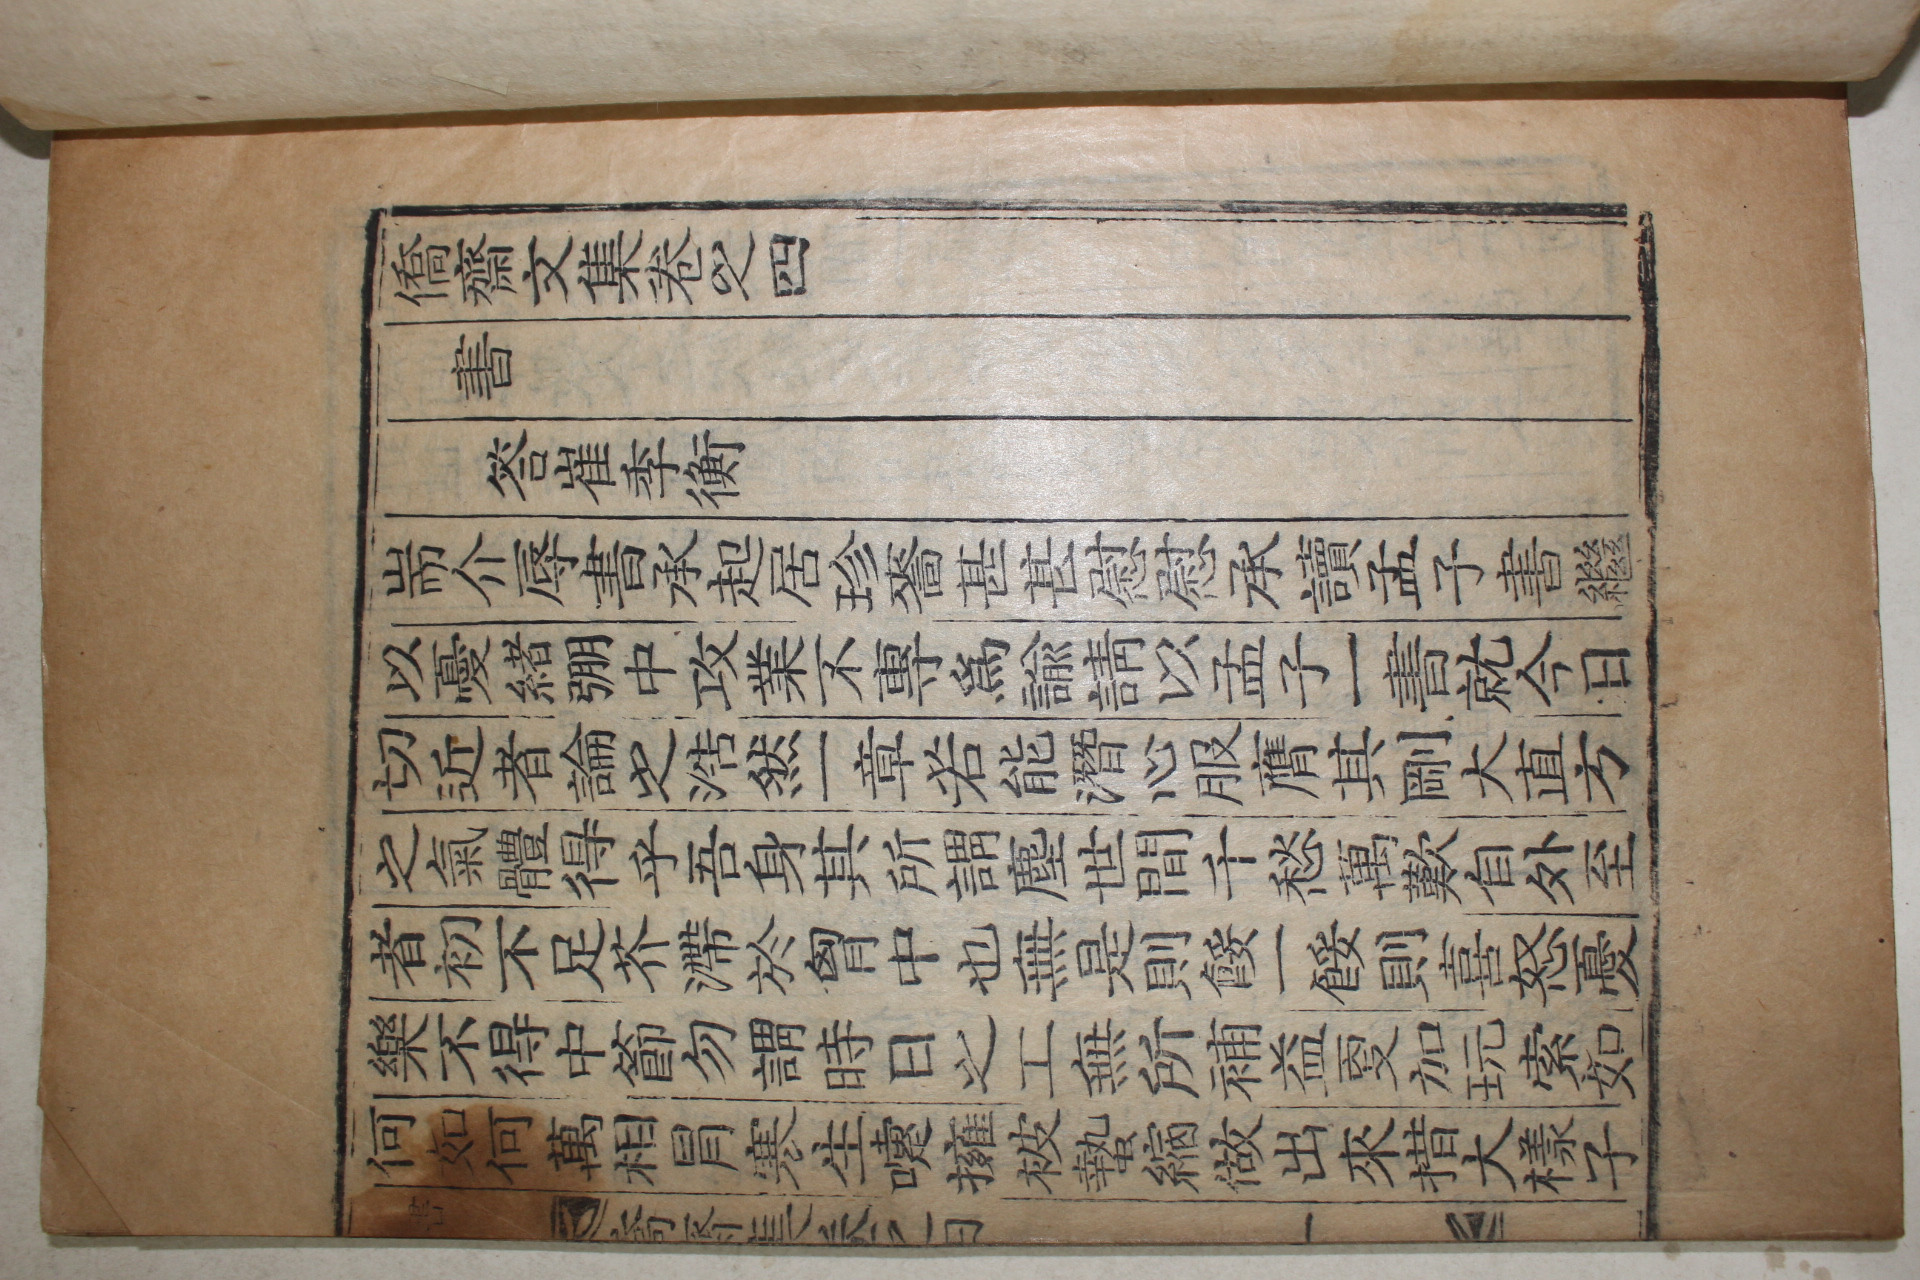 僑齋文集卷之四
書
答崔季衡
耑介辱書承起居珍嗇甚甚慰慰承讀孟子書繼
以憂緖弸中攻業不專爲諭請以孟子一書就今日
切近者論之浩然一章若能潛心服膺其剛大直方
之氣體得乎吾身其所謂塵世間千愁萬歎自外至
者初不足芥滯於胷中也無是則餒一餒則喜怒憂
樂不得中節勿謂時日之工無所補益更加玩索如
何如何萬相冒寒生嚏擁被蟄縮做出來措大樣子